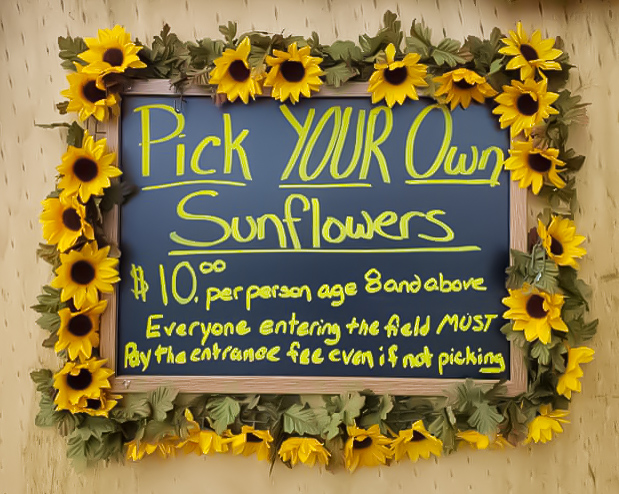 Pick YOUR Own
Sunflowers
$10.00 per person age 8 and above
Everyone entering the field MUST
Pay the entrance fee even if not picking